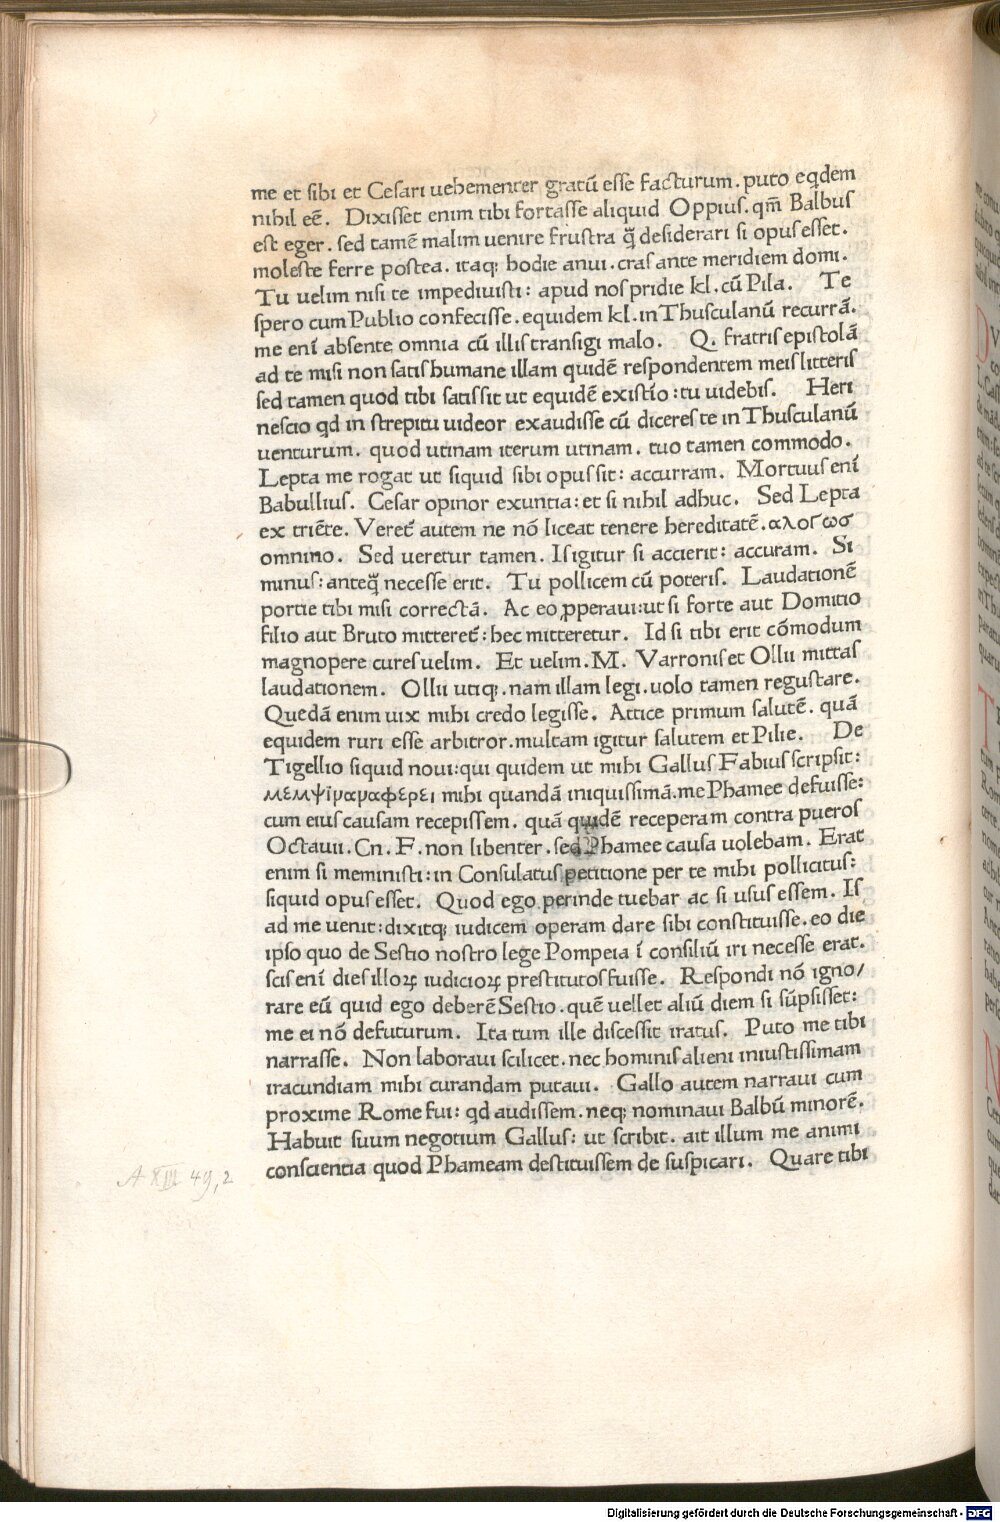 me et sibi et Cesari uehementer gratū esse facturum. puto eqdem
nihil eē. Dixisset enim tibi fortasse aliquid Oppius. qm̄ Balbus
est eger. sed tamē malim uenire frustra q̄̄ desiderari si opus esset.
moleste ferre postea. itaq; hodie anui. cras ante meridiem domi.
Tu uelim nisi te impediuisti: apud nos pridie kl. cū Pila. Te
spero cum Publio confecisse. equidem kl. in Thusculanū recurrā.
me enī absente omnia cū illis transigi malo. Q. fratris epistolā
ad te misi non satis humane illam quidē respondentem meis litteris
sed tamen quod tibi satis sit ut equidē existīo: tu uidebis. Heri
nescio qd in strepitu uideor exaudisse cū diceres te in Thusculanū
uenturum. quod utinam iterum utinam. tuo tamen commodo.
Lepta me rogat ut siquid sibi opus sit: accurram. Mortuus enī
Babullius. Cesar opinor ex untia: et si nihil adhuc. Sed Lepta
ex triēte. Veret̄ autem ne nō liceat tenere hereditatē. αλογωσ
omnino. Sed ueretur tamen. Is igitur si accierit: accuram. Si
minus: anteq̄̄ necesse erit. Tu pollicem cū poteris. Laudationē
portie tibi misi correctā. Ac eo ꝓperaui: ut si forte aut Domitio
filio aut Bruto mitteret̄: hec mitteretur. Id si tibi erit cōmodum
magnopere cures uelim. Et uelim. M. Varronis et Ollii mittas
laudationem. Ollii utiq;. nam illam legi. uolo tamen regustare.
Quedā enim uix mihi credo legisse. Attice primum salutē. quā
equidem ruri esse arbitror. multam igitur salutem et Pilie. De
Tigellio siquid noui: qui quidem ut mihi Gallus Fabius scripsit:
μεμψιναναφερει mihi quandā iniquissimā. me Phamee defuisse:
cum eius causam recepissem. quā quidē receperam contra pueros
Octauii. Cn. F. non libenter. sed Phamee causa uolebam. Erat
enim si meministi: in Consulatus petitione per te mihi pollicitus:
siquid opus esset. Quod ego perinde tuebar ac si usus essem. Is
ad me uenit: dixitq; iudicem operam dare sibi constituisse. eo die
ipso quo de Sestio nostro lege Pompeia ī consiliū iri necesse erat.
scis enī dies illoꝝ iudicioꝝ prestitutos fuisse. Respondi nō igno/
rare eū quid ego deberē Sestio. quē uellet aliū diem si sūpsisset:
me ei nō defuturum. Ita tum ille discessit iratus. Puto me tibi
narrasse. Non laboraui scilicet. nec hominis alieni iniustissimam
iracundiam mihi curandam putaui. Gallo autem narraui cum
proxime Rome fui: qd audissem. neq; nominaui Balbū minorē.
Habuit suum negotium Gallus: ut scribit. ait illum me animi
conscientia quod Phameam destituissem de suspicari. Quare tibi
A XIII 49,2
Digitalisierung gefördert durch die Deutsche Forschungsgemeinschaft - DFG